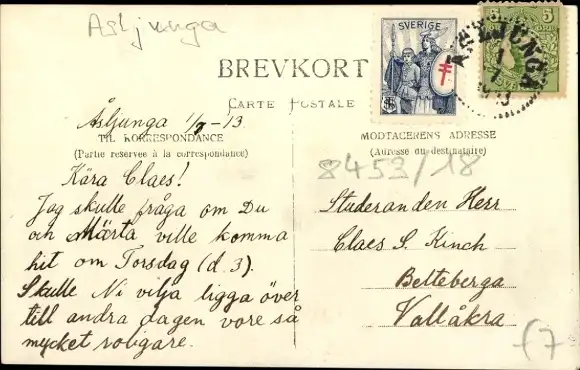 Asljunga
SVERIGE
5
ÅSLJUNGA
BREVKORT
CARTE POSTALE
Åsljunga 1/7 -13
TIL KORRESPONDANCE
(Partie reservee à la correspondance)
MODTAGERENS ADRESSE
(Adresse du destinataire)
8453/18
Kära Claes!
Jag skulle fråga om Du
och Märta ville komma
hit om Torsdag (d. 3).
Skulle Ni vilja ligga över
till andra dagen vore så
mycket roligare.
Studeranden Herr
Claes S. Kinch
Belteberga
Vallåkra
f7